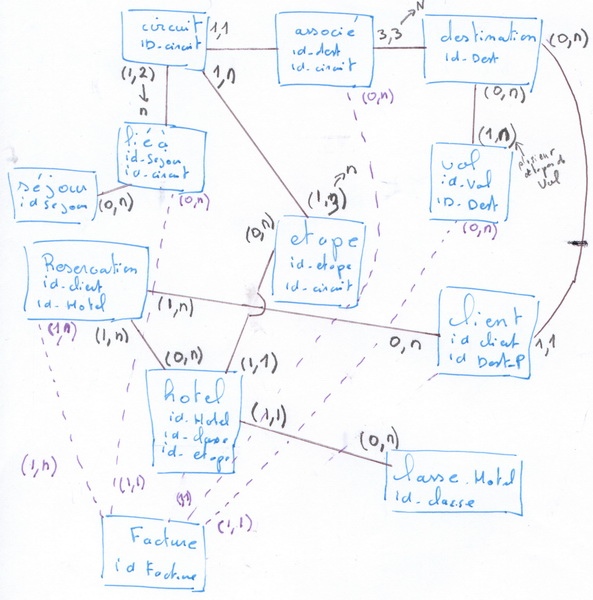 circuit
ID-circuit
1,1
associé
id-dest
id-circuit
3,3
N
destination
id-Dest
(0,n)
(1,2)
n
1,n
(0,n)
(0,n)
liéà
id-Sejour
id-circuit
(1,n)
vol
id-vol
ID-Dest
vol
séjour
id Sejour
(0,n)
(0,n)
(1,3)
n
(0,n)
etape
id-etape
id-circuit
(0,n)
Reservation
id-client
id-Hotel
(1,n)
(1,n)
(1,n)
0,n
client
id client
id Dest-P
1,1
(0,n)
(1,1)
hotel
id-Hotel
id-classe
id-etape
(1,1)
(0,n)
classe-Hotel
id-classe
(1,n)
(1,1)
(1,1)
Facture
id Facture